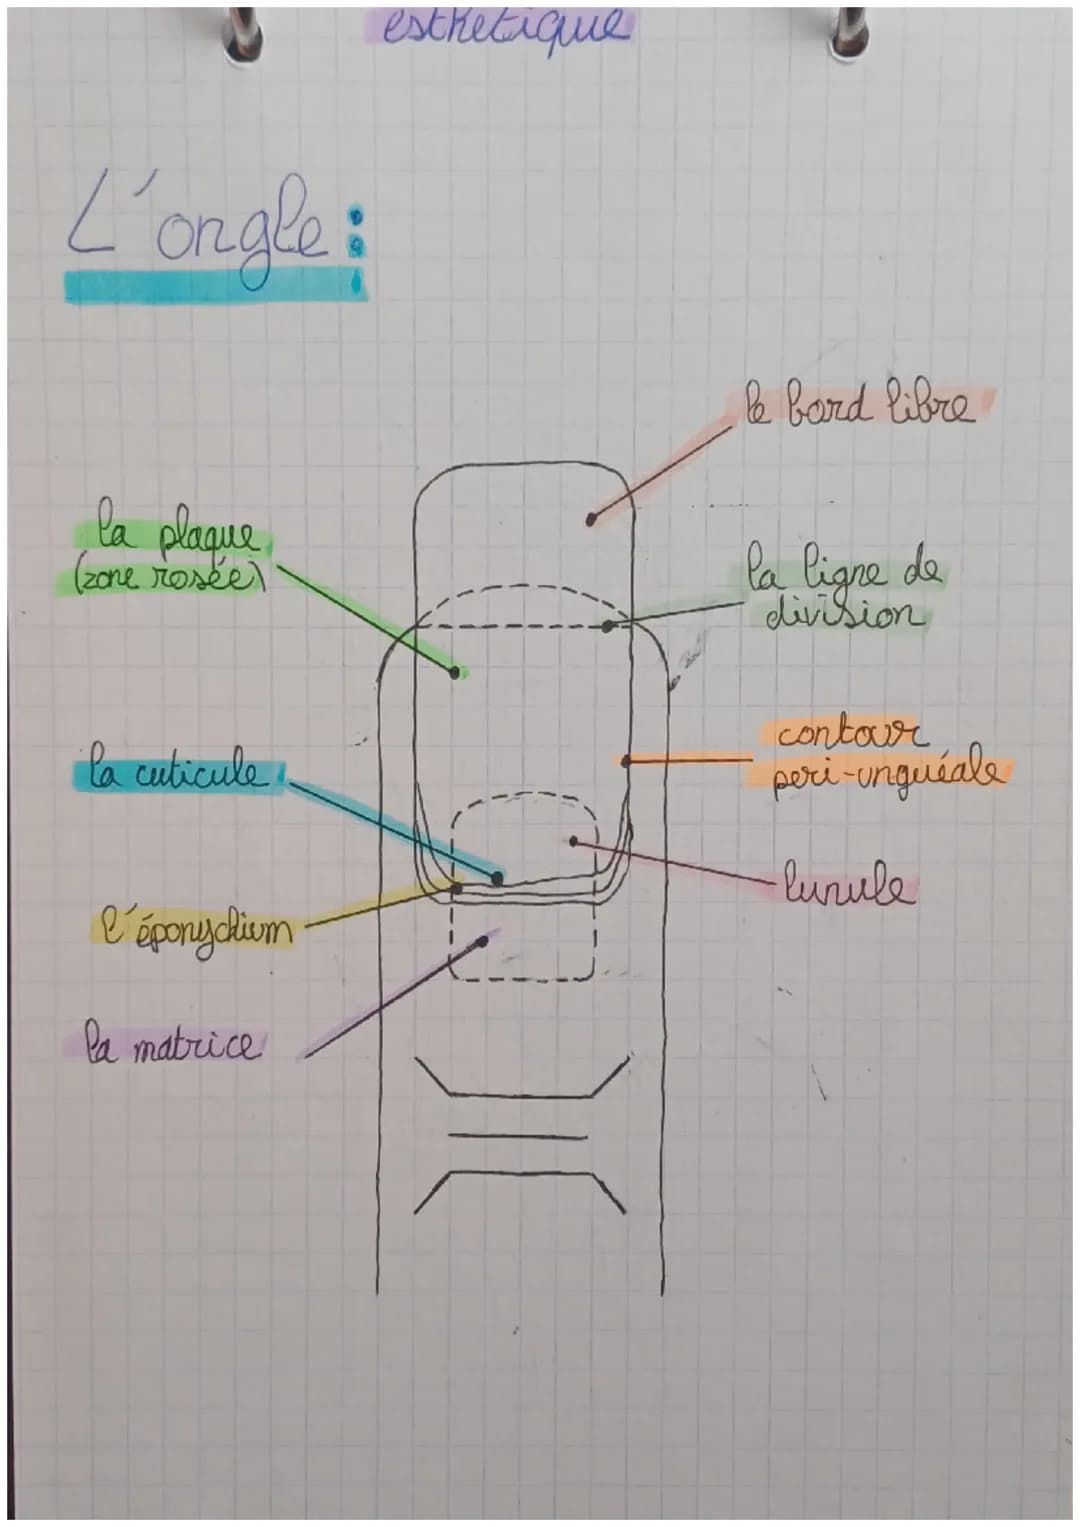 esthetique
L'ongle :
le bord libre
la plaque
(zone rosée)
la ligne de
division
la cuticule
contour
peri-unguéale
lunule
l'éponychium
la matrice